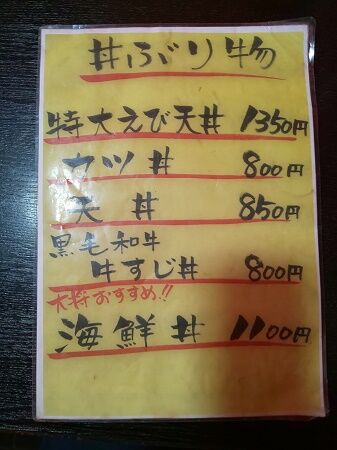 丼ぶり物
特大えび天丼 1350円
カツ丼 800円
天丼 850円
黒毛和牛
牛すじ丼 800円
大将おすすめ!!
海鮮丼 1100円